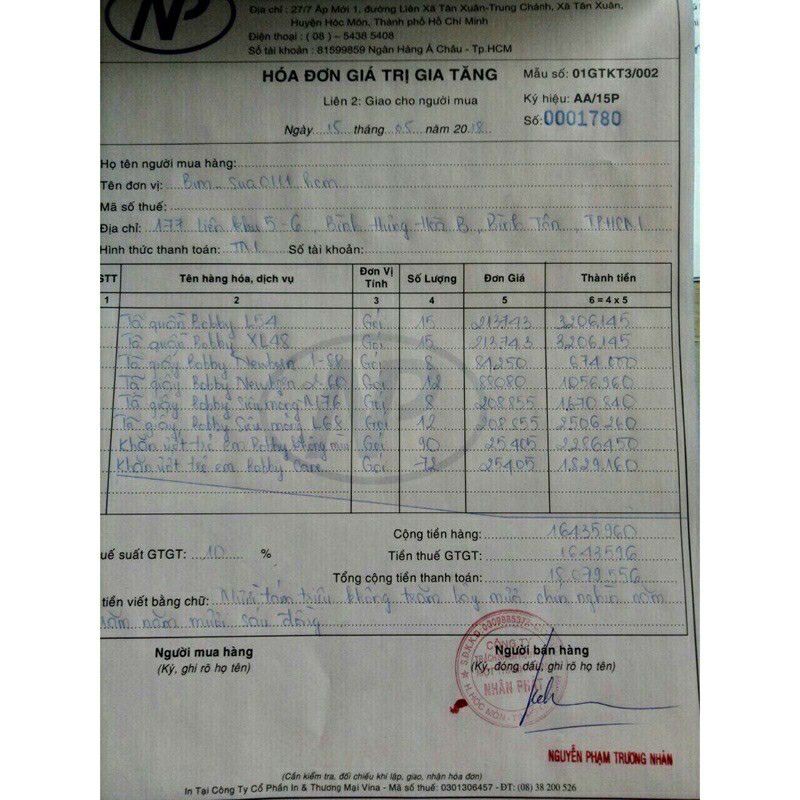 NP
Địa chỉ : 27/7 Ấp Mới 1, đường Liên Xã Tân Xuân-Trung Chánh, Xã Tân Xuân,
Huyện Hóc Môn, Thành phố Hồ Chí Minh
Điện thoại : ( 08 ) – 5438 5408
Số tài khoản : 81599859 Ngân Hàng Á Châu - Tp.HCM
HÓA ĐƠN GIÁ TRỊ GIA TĂNG
Mẫu số: 01GTKT3/002
Liên 2: Giao cho người mua
Ký hiệu: AA/15P
Ngày 15 tháng 05 năm 2018
Số: 0001780
Họ tên người mua hàng:
Tên đơn vị: Bim Sua hcm
Mã số thuế:
Địa chỉ: 177 Liên khu 5-6, Bình Hưng Hòa B, Bình Tân, TPHCM
Hình thức thanh toán: TM Số tài khoản:
STT Tên hàng hóa, dịch vụ Đơn Vị Tính Số Lượng Đơn Giá Thành tiền
1 2 3 4 5 6 = 4 x 5
Tã quần Bobby L54 Gói 15 213743 3206145
Tã quần Bobby XL48 Gói 15 213743 3206145
Tã giấy Bobby Newborn Gói 8 84250 674000
Tã giấy Bobby Newborn Gói 12 88080 1056960
Tã giấy Bobby Siêu mỏng M76 Gói 8 208855 1670840
Tã giấy Bobby Siêu mỏng L68 Gói 12 208855 2506260
Khăn ướt trẻ em Bobby không mùi Gói 90 25405 2286450
Khăn ướt trẻ em Bobby Care Gói 72 25405 1829160
Cộng tiền hàng: 16435960
uế suất GTGT: 10 % Tiền thuế GTGT: 1643596
Tổng cộng tiền thanh toán: 18.079.556
tiền viết bằng chữ: Mười tám triệu không trăm bảy mươi chín nghìn năm
trăm năm mươi sáu đồng
Người mua hàng
Người bán hàng
(Ký, ghi rõ họ tên)
(Ký, đóng dấu, ghi rõ họ tên)
CÔNG TY
NHÂN PHÁT
NGUYỄN PHẠM TRƯƠNG NHÂN
(Cần kiểm tra, đối chiếu khi lập, giao, nhận hóa đơn)
In Tại Công Ty Cổ Phần In & Thương Mại Vina - Mã số thuế: 0301306457 - ĐT: (08) 38 200 526